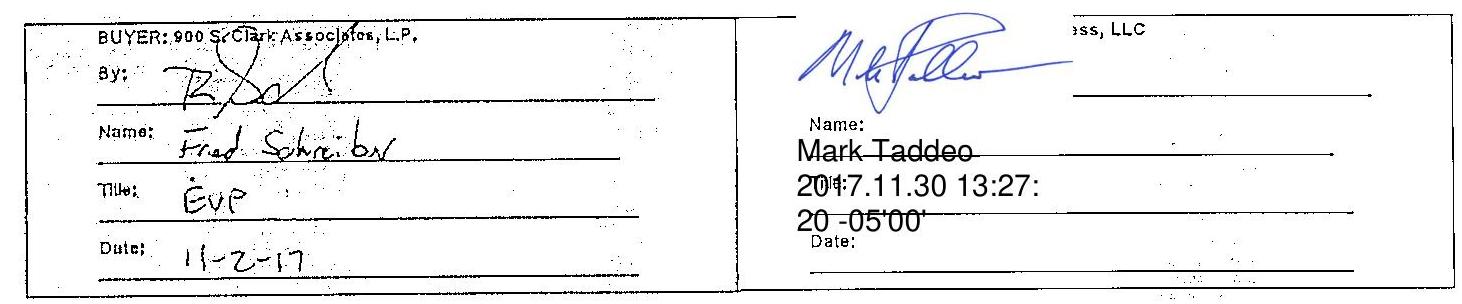 BUYER: 900 S. Clark Associates, L.P.
By:
Name: Fred Schreiber
Title: EVP
Date: 11-2-17
ess, LLC
Name:
Mark Taddeo
Title:
2017.11.30 13:27:
20 -05'00'
Date: